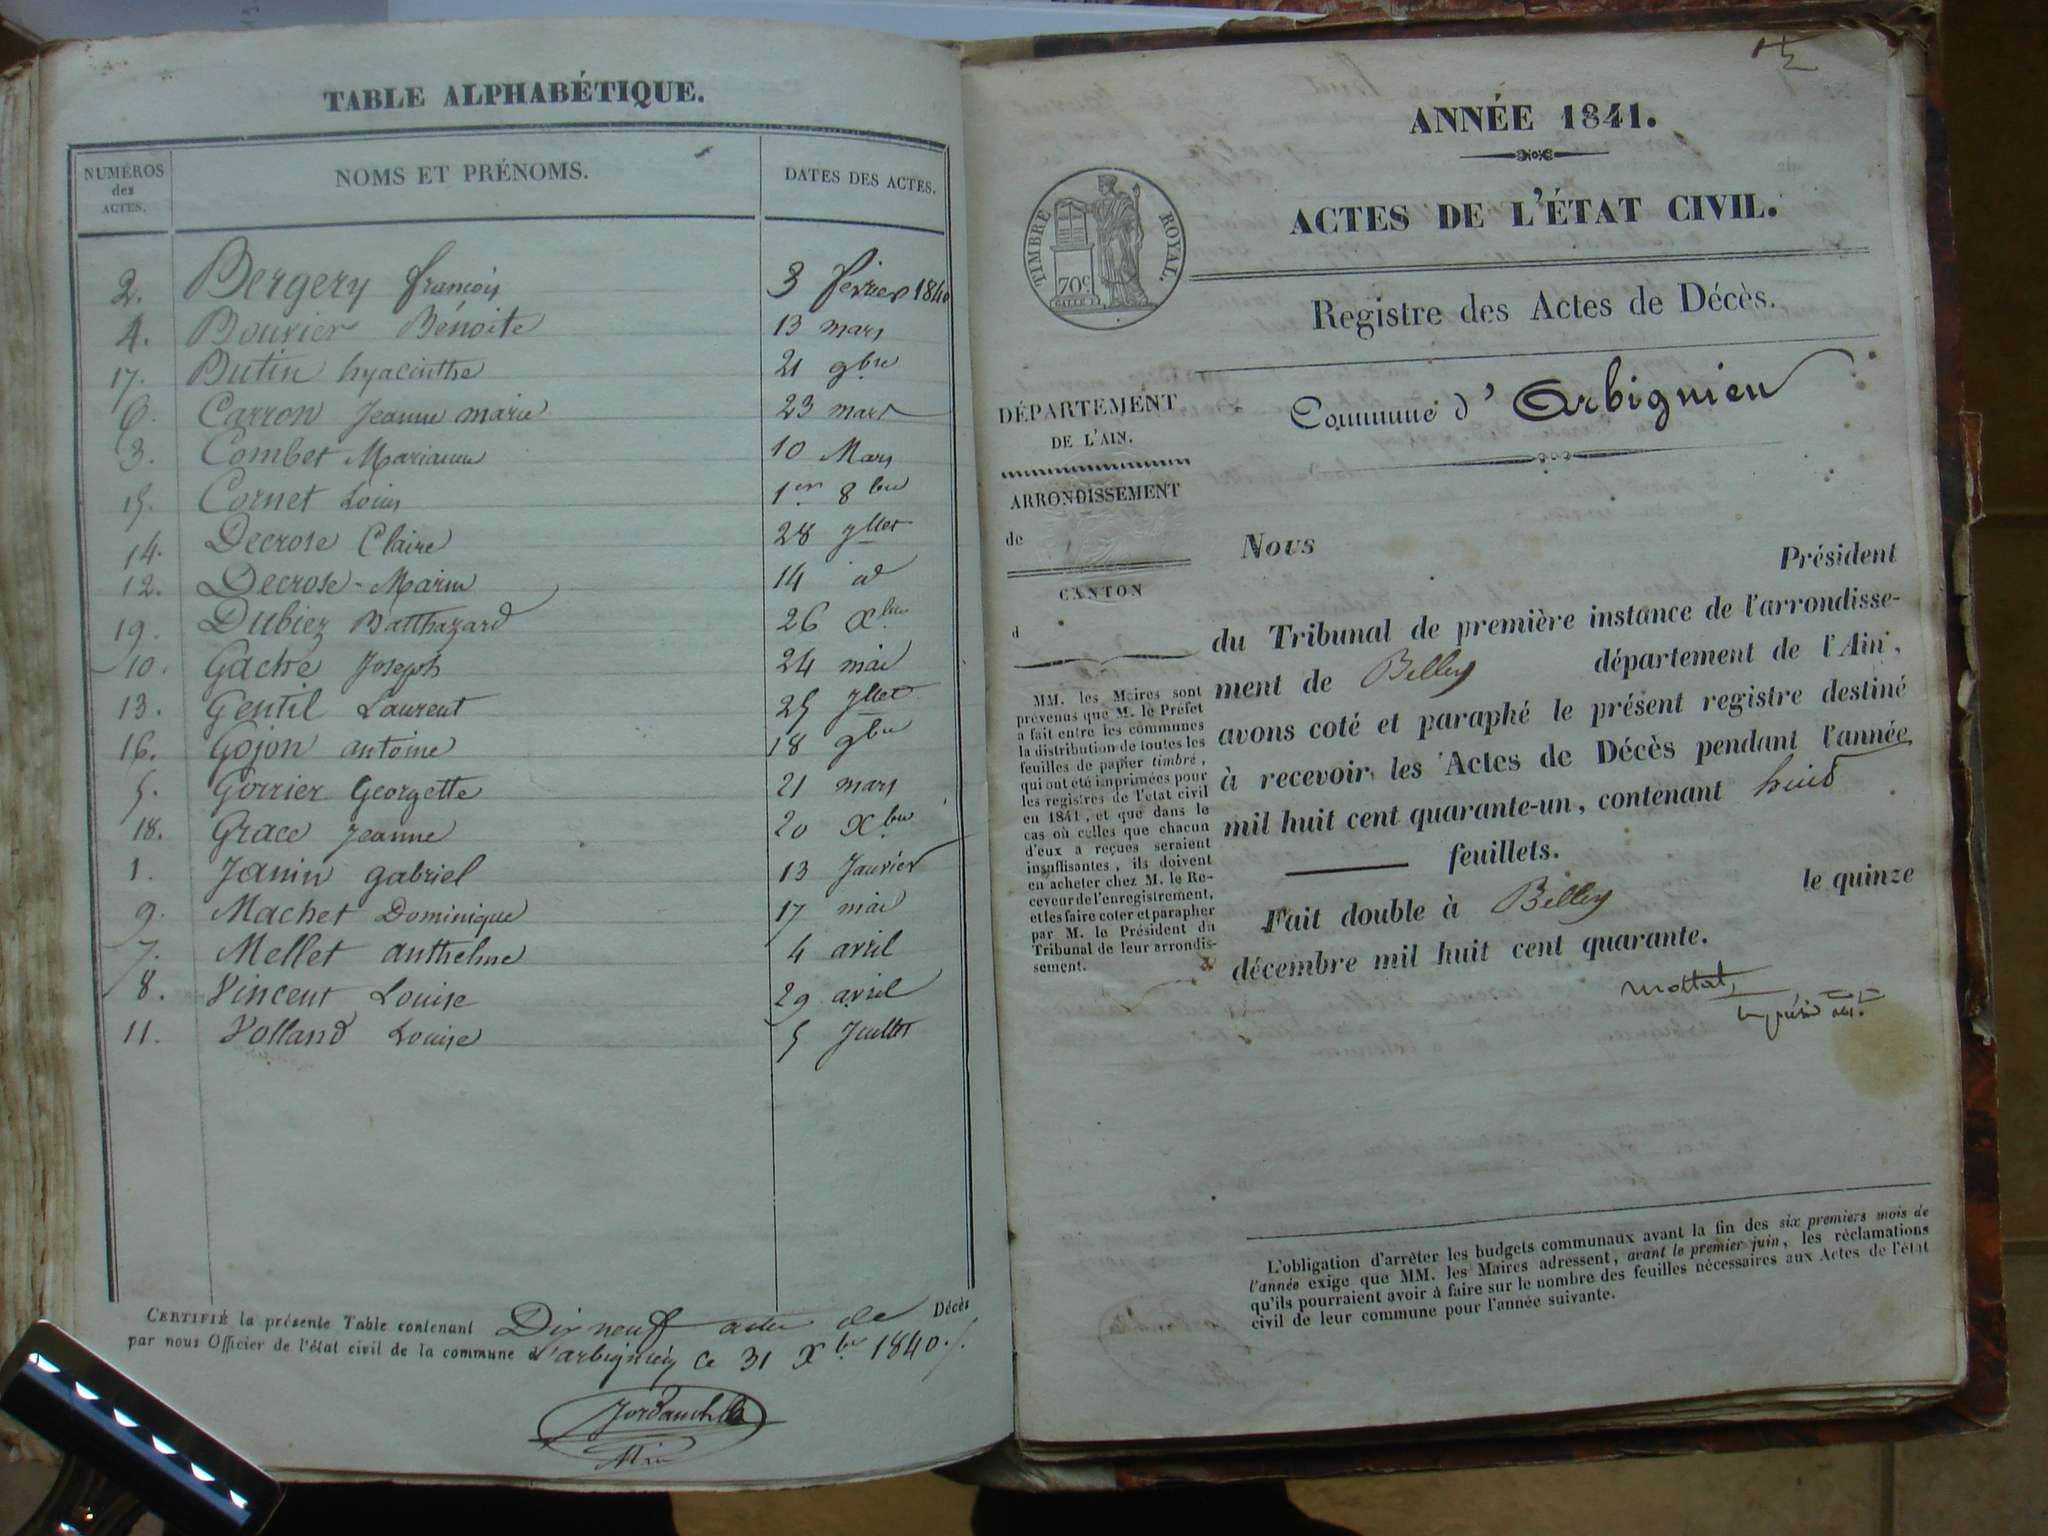 TABLE ALPHABÉTIQUE.
NUMÉROS des ACTES. NOMS ET PRÉNOMS. DATES DES ACTES.
2. Bergery francois 3 février 1840
4. Bouvier Bénoite 13 mars
17. Butin hyacinthe 21 9bre
6. Carron Jeanne marie 23 mars
3. Combet Marianne 10 Mars
15. Cornet Louis 1er 8bre
14. Decrose Claire 28 Jllet
12. Decrose Marie 14 id
19. Dubiez Balthazard 26 Xbre
10. Gaché Joseph 24 mai
13. Gentil Laurent 25 Jllet
16. Gojon antoine 18 9bre
5. Gorrier Georgette 21 mars
18. Grace Jeanne 20 Xbre
1. Janin gabriel 13 Janvier
9. Machet Dominique 17 mai
7. Mellet anthelme 4 avril
8. Vincent Louise 29 avril
11. Volland Louise 5 Juillet
CERTIFIÉ la présente Table contenant Dix neuf actes de Décès
par nous Officier de l'état civil de la commune d'arbignieu ce 31 Xbre 1840.
ANNÉE 1841.
ACTES DE L'ÉTAT CIVIL.
TIMBRE ROYAL.
70c
Registre des Actes de Décès.
Commune d'Arbignieu
DÉPARTEMENT
DE L'AIN.
ARRONDISSEMENT
de
CANTON
d
MM. les Maires sont
prévenus que M. le Préfet
a fait entre les communes
la distribution de toutes les
feuilles de papier timbré,
qui ont été imprimées pour
les registres de l'état civil
en 1841, et que dans le
cas où celles que chacun
d'eux a reçues seraient
insuffisantes, ils doivent
en acheter chez M. le Re-
ceveur de l'enregistrement,
et les faire coter et parapher
par M. le Président du
Tribunal de leur arrondis-
sement.
Nous Président
du Tribunal de première instance de l'arrondisse-
ment de Belley département de l'Ain,
avons coté et paraphé le présent registre destiné
à recevoir les Actes de Décès pendant l'année
mil huit cent quarante-un, contenant huit
feuillets.
Fait double à Belley le quinze
décembre mil huit cent quarante.
L'obligation d'arrêter les budgets communaux avant la fin des six premiers mois de
l'année exige que MM. les Maires adressent, avant le premier juin, les réclamations
qu'ils pourraient avoir à faire sur le nombre des feuilles nécessaires aux Actes de l'état
civil de leur commune pour l'année suivante.